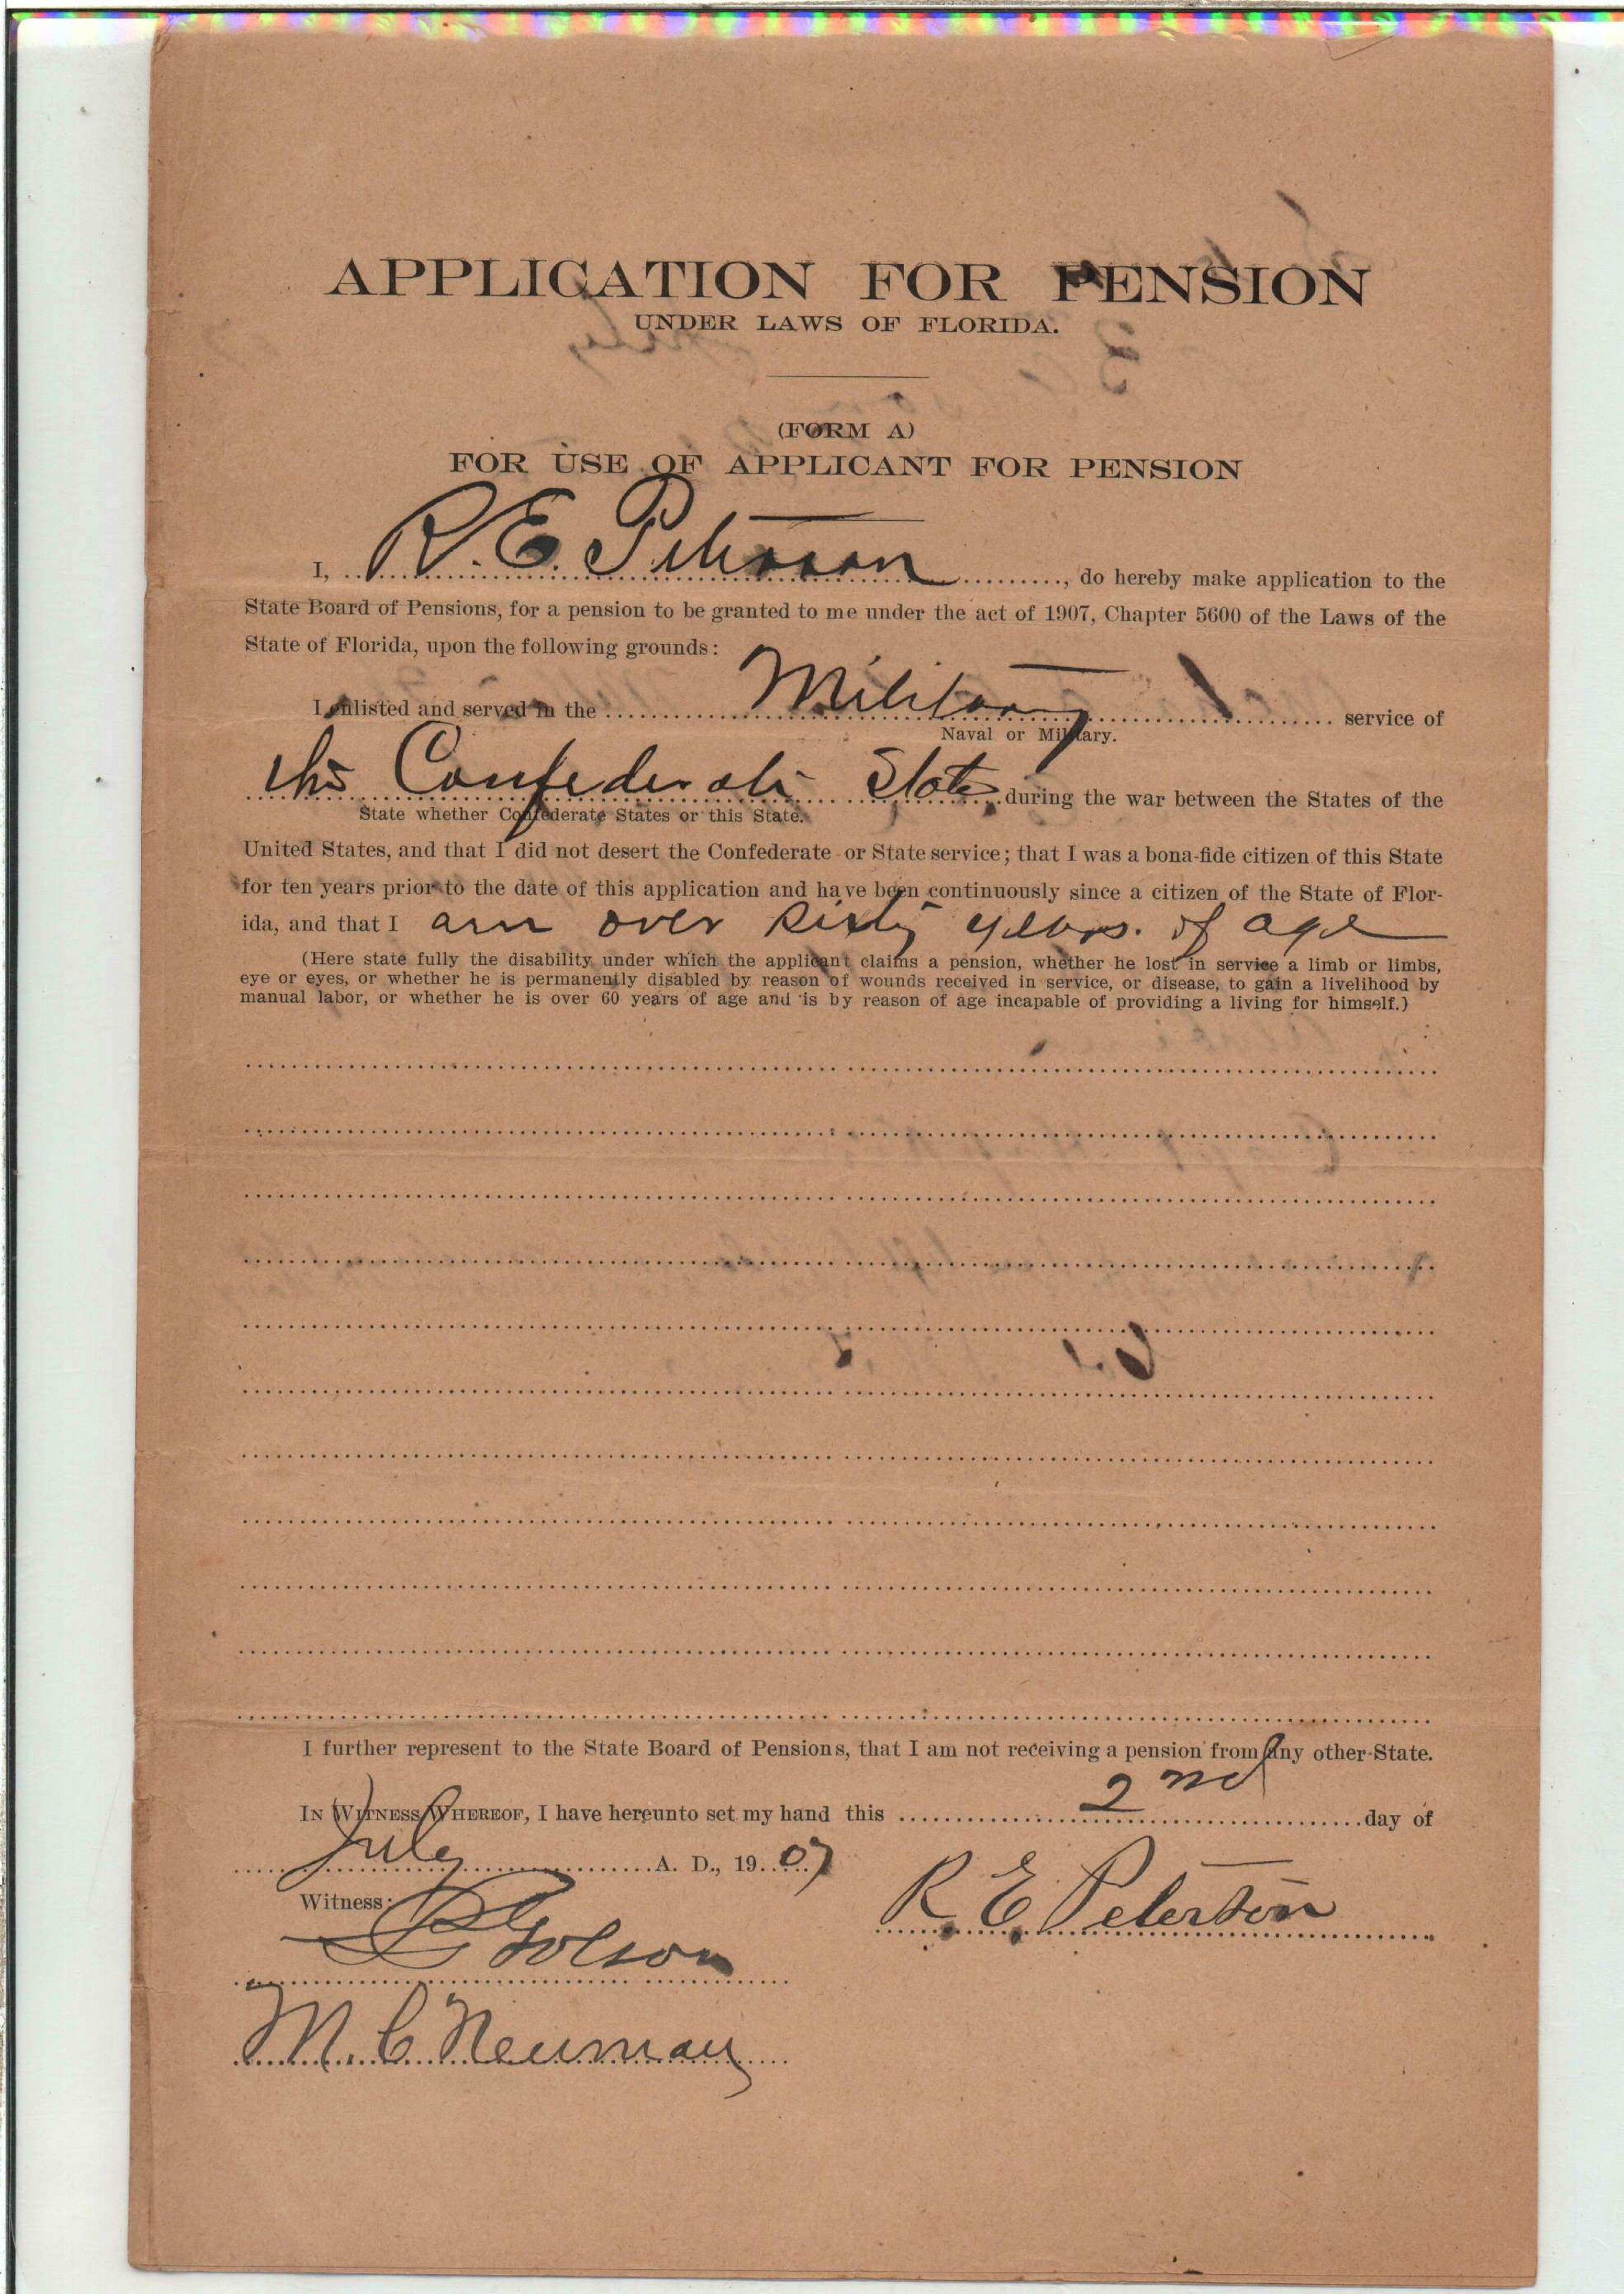 APPLICATION FOR PENSION
UNDER LAWS OF FLORIDA.
(FORM A)
FOR USE OF APPLICANT FOR PENSION
I, R. E. Peterson, do hereby make application to the
State Board of Pensions, for a pension to be granted to me under the act of 1907, Chapter 5600 of the Laws of the
State of Florida, upon the following grounds:
I enlisted and served in the Military service of
Naval or Military.
the Confederate States during the war between the States of the
State whether Confederate States or this State.
United States, and that I did not desert the Confederate or State service; that I was a bona-fide citizen of this State
for ten years prior to the date of this application and have been continuously since a citizen of the State of Flor-
ida, and that I am over sixty years. of age
(Here state fully the disability under which the applicant claims a pension, whether he lost in service a limb or limbs,
eye or eyes, or whether he is permanently disabled by reason of wounds received in service, or disease, to gain a livelihood by
manual labor, or whether he is over 60 years of age and is by reason of age incapable of providing a living for himself.)
I further represent to the State Board of Pensions, that I am not receiving a pension from any other State.
IN WITNESS WHEREOF, I have hereunto set my hand this 2nd day of
July A. D., 1907
Witness:
R E Peterson
Golson
M. C. Neuman